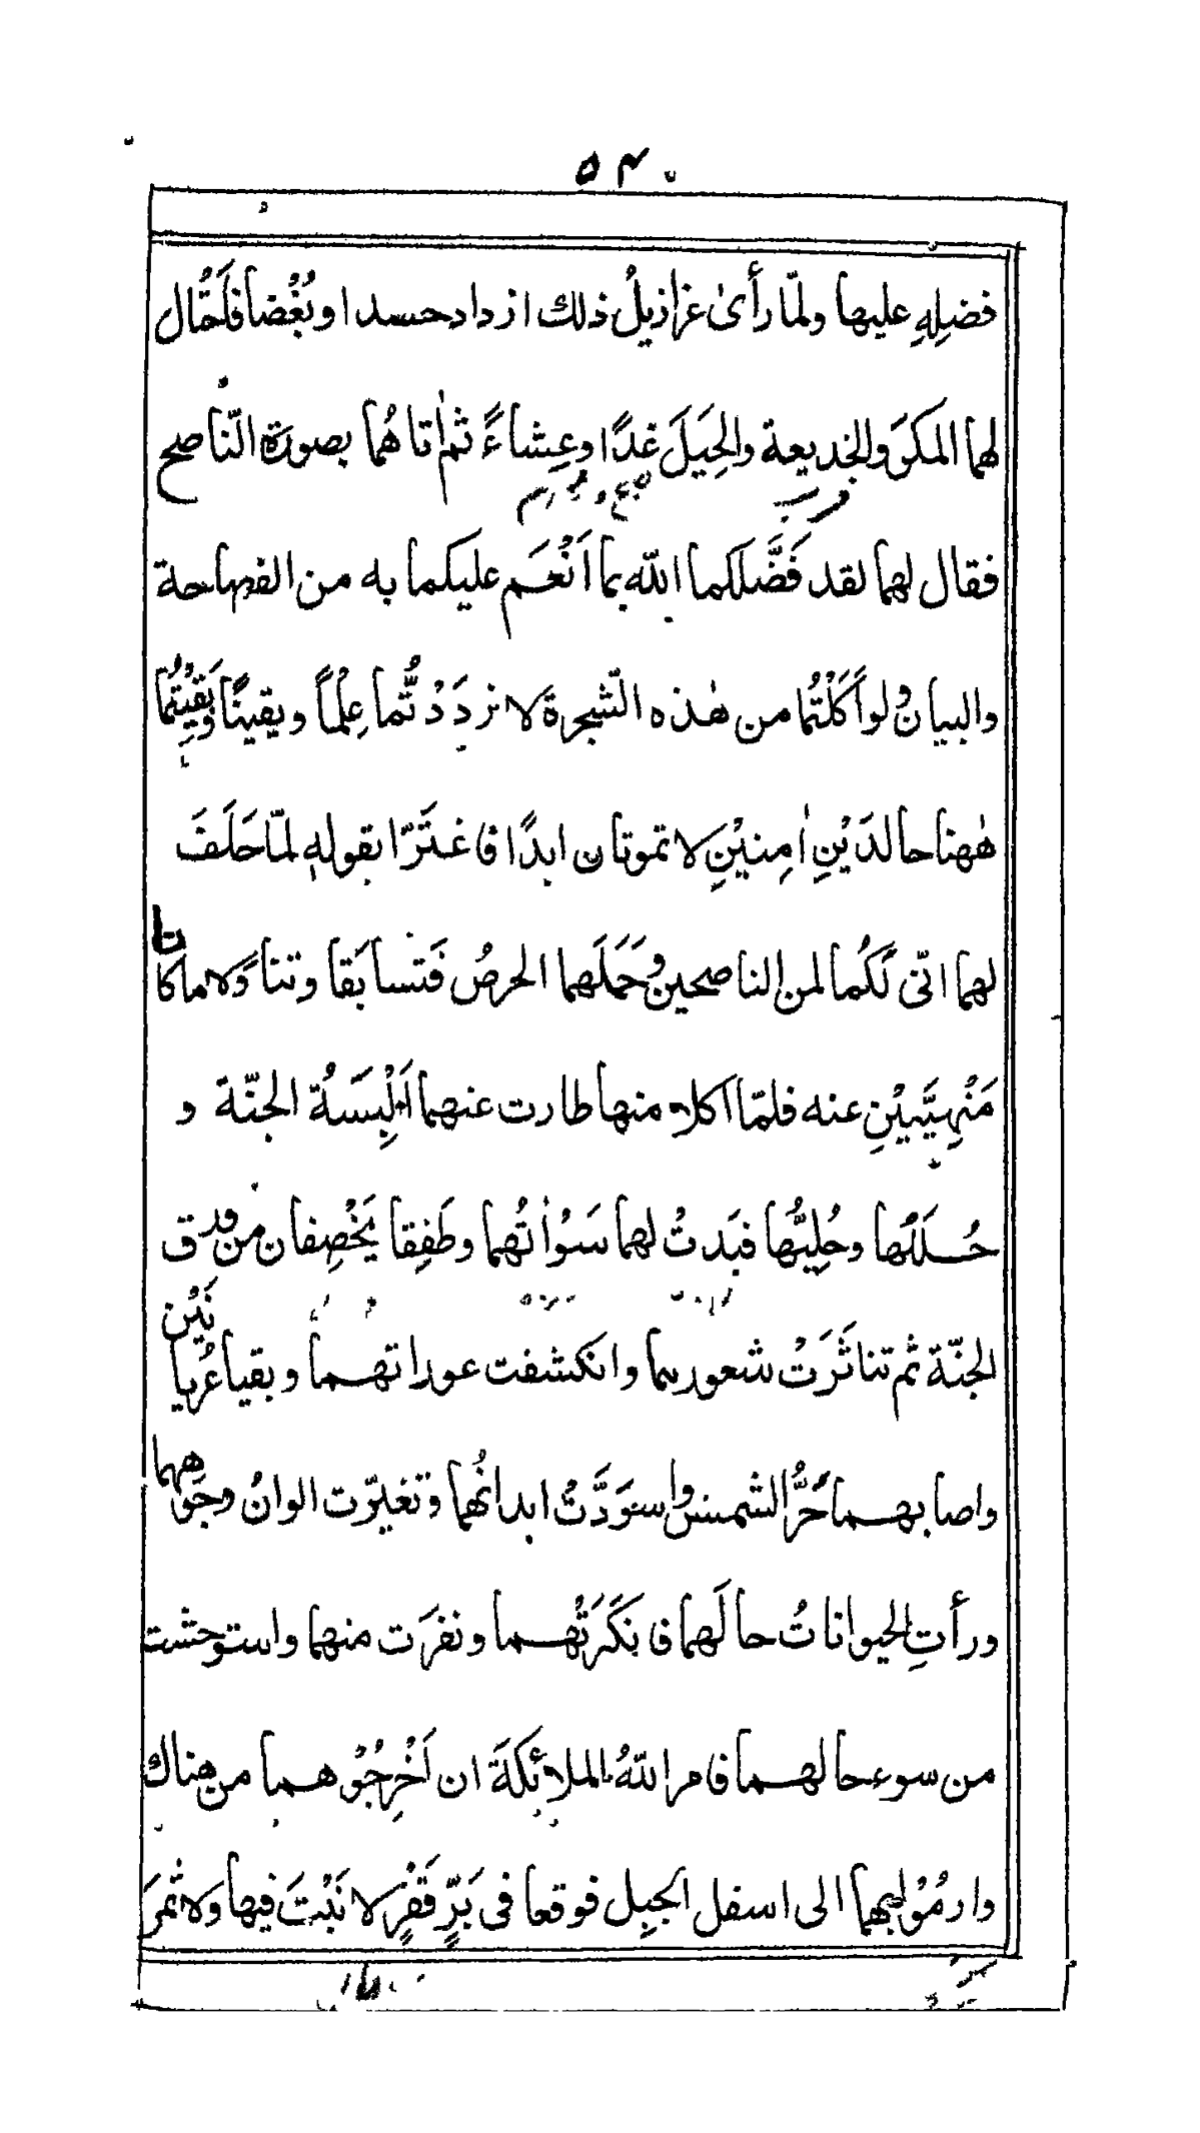 ٥٣
فضلِهِ عليها ولمّا رأىٰ عزازيلُ ذلك ازداد حسدا وبُغْضا فلحتال
لهما المكرَ والخديعة والحِيَلَ غدًا وعِشاءً ثم اٰتاهُما بصورة النّاصح
فقال لهما لقد فَضَّلكما اللّٰه بما اَنْعَم عليكما به من الفصاحة
والبيان ولو اَكَلْتُما من هٰذه الشّجرة لازدَدْتُّما عِلْماً ويقينًا وبَقِيْتُما
هٰهنا خالدَيْنِ اٰمِنيْنِ لا تموتان ابدًا فاغتَرّا بقوله لمّا حَلَفَ
لهما انّى لَكُما لمن الناصحين وحَمَلَهما الحرصُ فَتسابَقا وتناوَلا ما كانا
مَنْهِيَّيْنِ عنه فلمّا اكلا منها طارت عنهما اَلْبِسَةُ الجنّة و
حُلَلُها وحُلِيُّها فبَدتْ لهما سَوْاٰتُهما وطَفِقا يَخْصِفان من ورق
الجنّة ثم تناثَرَتْ شعورهما وانكشفت عوراتهما وبقيا عُريانَيْن
واصابهما حَرُّ الشمس واسوَدَّتْ ابدانُهما وتغيّرت الوانُ وجوههما
ورأتِ الحيواناتُ حالَهما فانكَرَتْهما ونفرَت منهما واستوحشت
من سوء حالهما فامر اللّٰهُ الملائكةَ ان اَخْرِجُوْهما من هناك
وارمُوْا بهما الى اسفل الجبِل فوقعا فى بَرٍّ قَفْرٍ لا نَبْتَ فيها ولا ثمَرَ